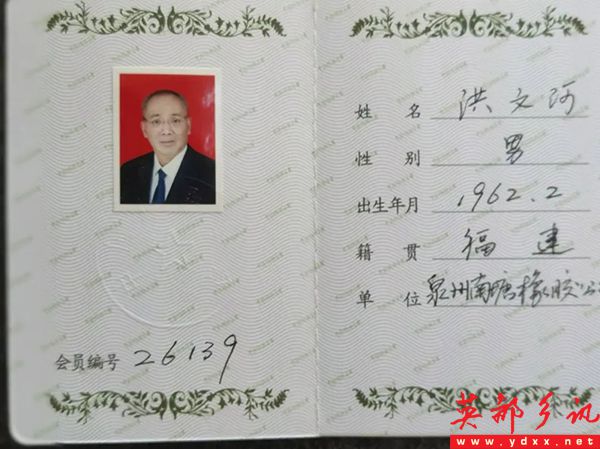 姓 名 洪文河
性 别 男
出生年月 1962.2
籍 贯 福建
单 位 泉州南塘橡胶公
会员编号 26139
英都乡讯
www.ydxx.net